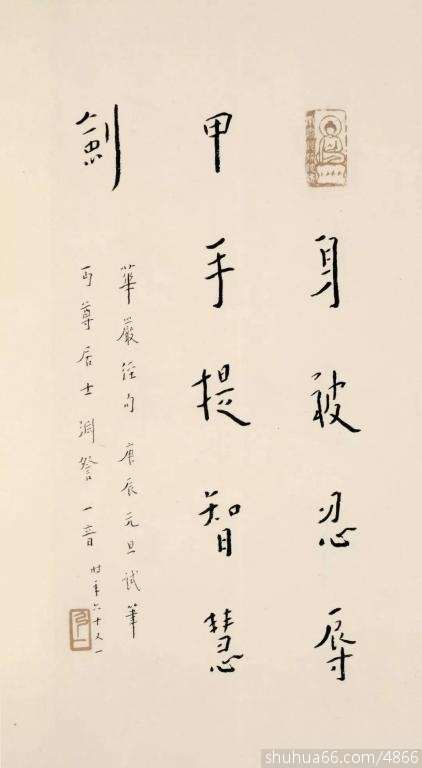 身被忍辱
甲手提智慧
劍
華嚴經句 庚辰元旦試筆
丏尊居士淵詧 一音 時年六十又一
shuhua66.com/4866